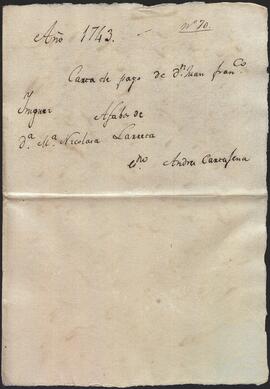 Año 1743. -
nº 70.
Carta de pago de dn Juan franco
Yuguer Afabor de
dª. Mª Nicolasa Larrea
eno Andres Cartasena